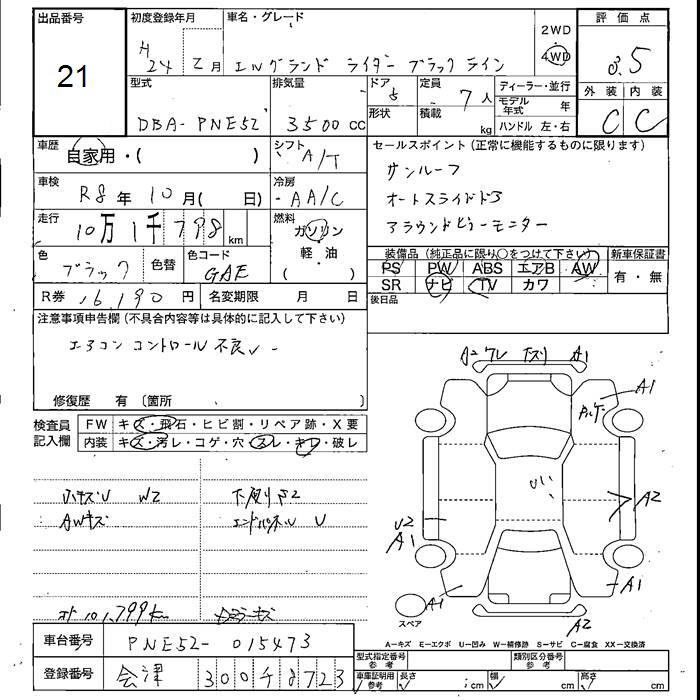 出品番号
21
初度登録年月
H 24 年 2 月
車名・グレード
エルグランド ライダー ブラックライン
2WD
4WD
評価点
3.5
外装 内装
C C
型式
DBA-PNE52
排気量
3500 cc
ドア
5
形状
定員
7人
積載 kg
ディーラー・並行
モデル年式 年
ハンドル 左・右
車歴
自家用・( )
シフト
A/T
セールスポイント(正常に機能するものに限ります)
サンルーフ
オートスライドドア
アラウンドビューモニター
車検
R8年 10月( 日)
冷房
AA/C
走行
10万1千798 km
燃料
ガソリン
軽・油
( )
色
ブラック
色替
色コード
GAE
装備品(純正品に限り○をつけて下さい)
PS PW ABS エアB AW
SR ナビ TV カワ
新車保証書
有・無
後日品
R券 16,190 円
名変期限 月 日
注意事項申告欄(不具合内容等は具体的に記入して下さい)
エアコン コントロール 不良
修復歴 有 〔箇所
検査員記入欄
FW キズ・飛石・ヒビ割・リペア跡・X要
内装 キズ・汚レ・コゲ・穴・スレ・キレ・破レ
小キズU W2
AWキズ
下廻りS2
エンドパネル U
101,799km
A2 ワレ A1
A1
A2
U2
A1
A1
A1
A2
スペア
A-キズ E-エクボ U-凹み W-補修跡 S-サビ C-腐食 XX-交換済
車台番号
PNE52-015473
登録番号
会津 300
8723
型式指定番号 参考
類別区分番号 参考
車庫証明用 参考
長さ cm
幅 cm
高さ cm